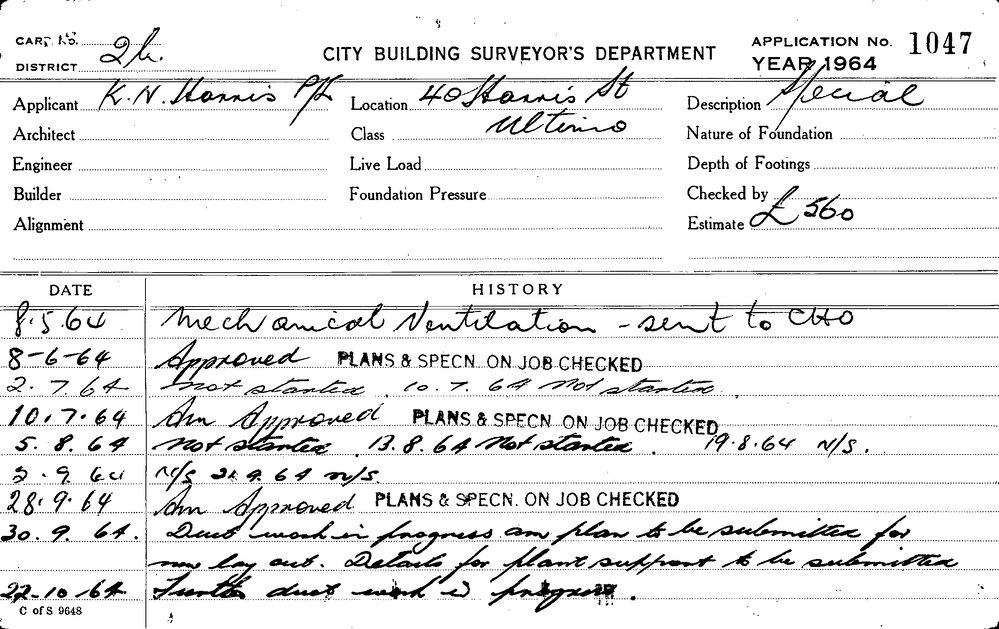 CARD No.
DISTRICT 2h.
CITY BUILDING SURVEYOR'S DEPARTMENT
APPLICATION No. 1047
YEAR 1964
Applicant K. N. Harris P/L Location 40 Harris St Description Special
Architect Class Ultimo Nature of Foundation
Engineer Live Load Depth of Footings
Builder Foundation Pressure Checked by
Alignment Estimate £ 560
DATE HISTORY
8.5.64 Mechanical Ventilation - sent to CHO
8-6-64 Approved PLANS & SPECN. ON JOB CHECKED
2.7.64 not started. 10.7.64 Not started.
10.7.64 Am Approved PLANS & SPECN ON JOB CHECKED
5.8.64 Not started. 13.8.64 Not started. 19.8.64 N/S.
2.9.64 N/S 21.9.64 N/S.
28.9.64 Am Approved PLANS & SPECN. ON JOB CHECKED
30.9.64. Duct work in progress am plan to be submitted for
new lay out. Details for plant support to be submitted
22.10.64 Further duct work in progress.
C of S 9648